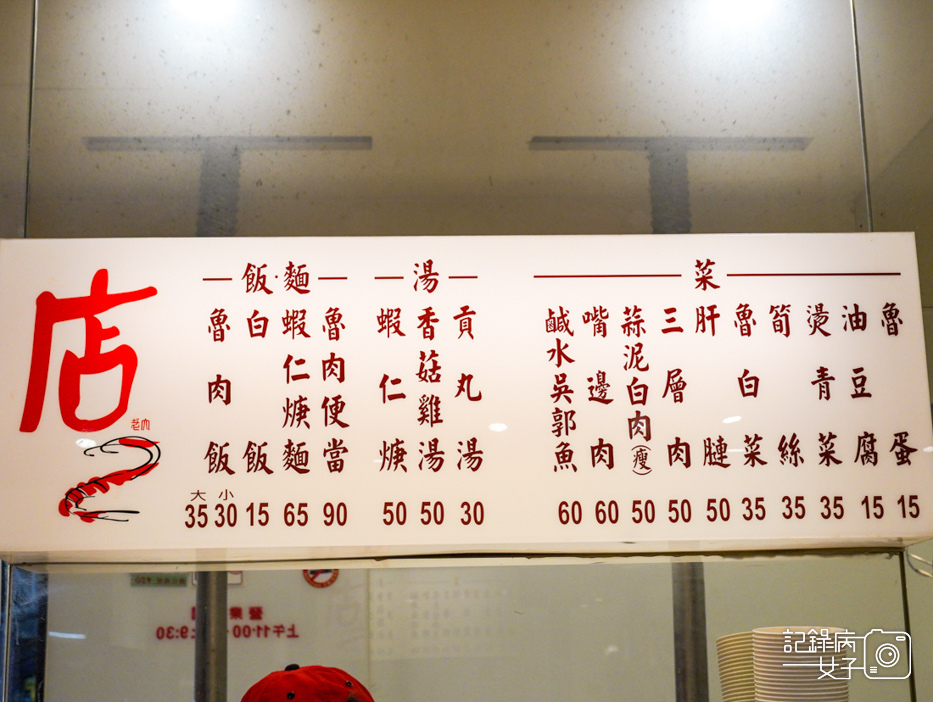 店
飯·麵
魯肉飯 大35 小30
白飯 15
蝦仁焿麵 65
魯肉便當 90
湯
蝦仁焿 50
香菇雞湯 50
貢丸湯 30
菜
鹹水吳郭魚 60
嘴邊肉 60
蒜泥白肉(瘦) 50
三層肉 50
肝腱 50
魯白菜 35
筍絲 35
燙青菜 35
油豆腐 15
魯蛋 15
營業
上午11:00
9:30
記錄病
女子